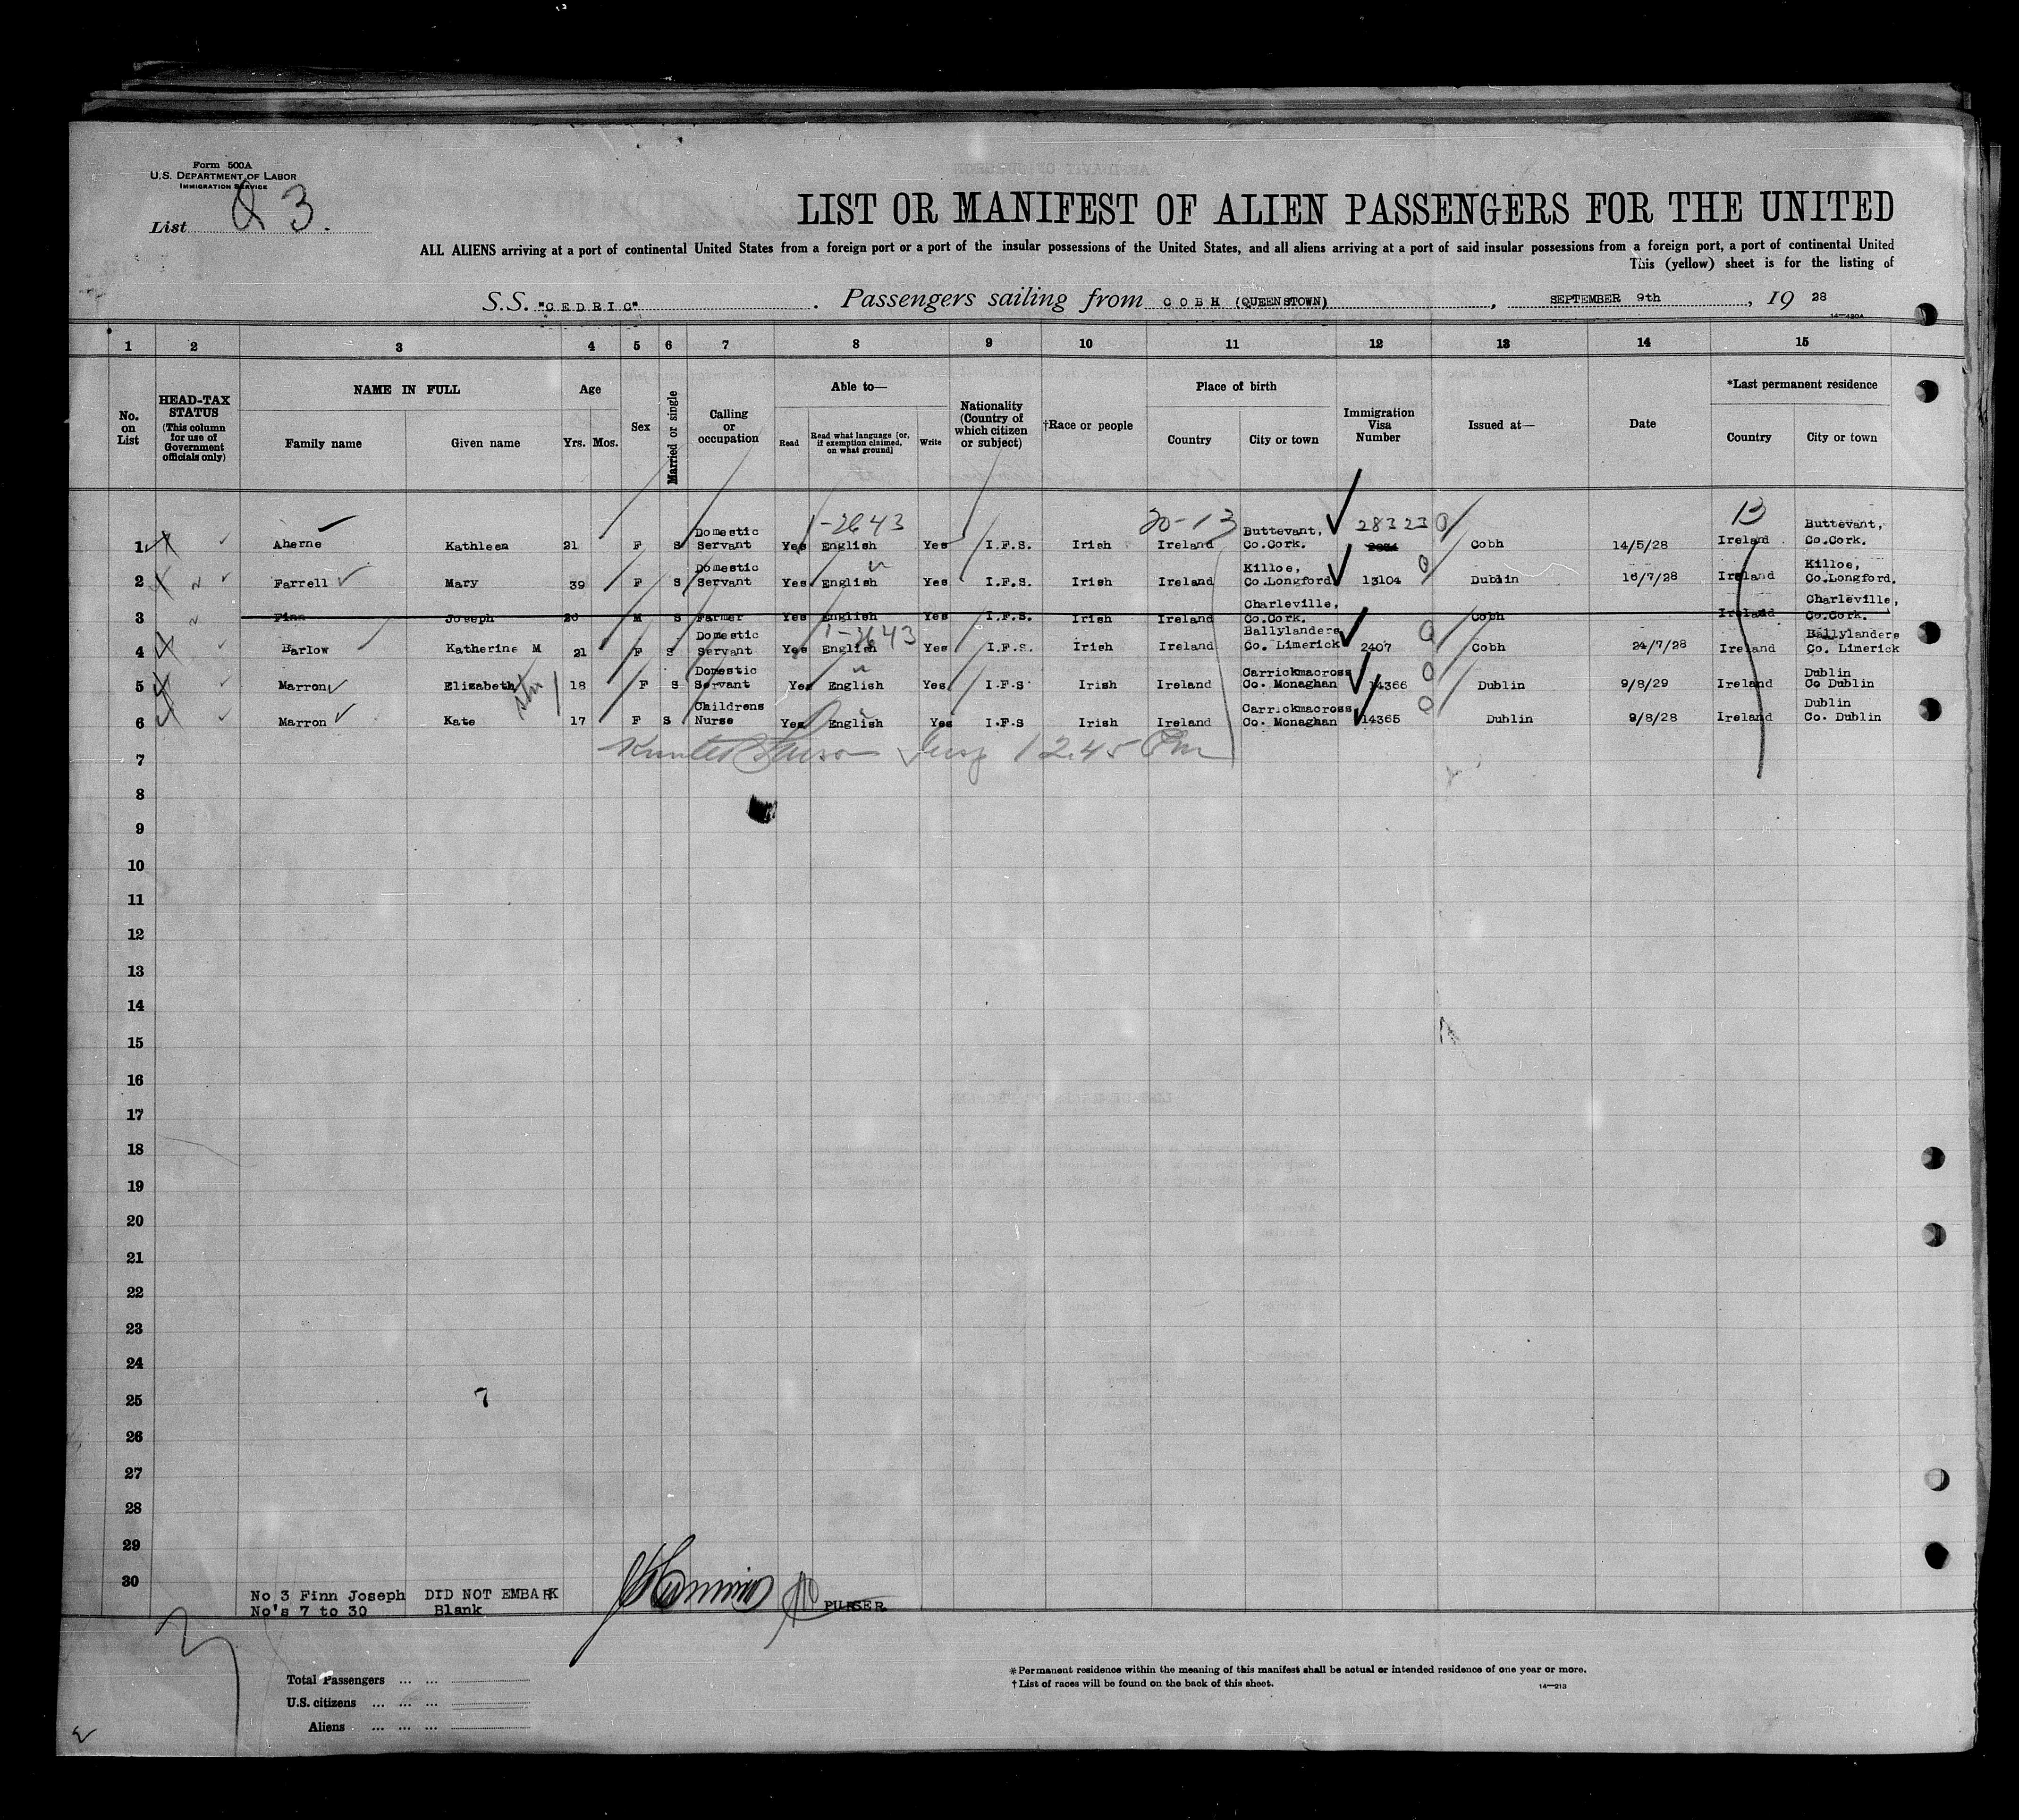 Form 500A
U.S. DEPARTMENT OF LABOR
IMMIGRATION SERVICE
List 3.
LIST OR MANIFEST OF ALIEN PASSENGERS FOR THE UNITED
ALL ALIENS arriving at a port of continental United States from a foreign port or a port of the insular possessions of the United States, and all aliens arriving at a port of said insular possessions from a foreign port, a port of continental United
This (yellow) sheet is for the listing of
S.S. "CEDRIC". Passengers sailing from COBH (QUEENSTOWN), SEPTEMBER 9th, 1928
14—430A
1 2 3 4 5 6 7 8 9 10 11 12 13 14 15
No. on List
HEAD-TAX STATUS (This column for use of Government officials only)
NAME IN FULL
Family name Given name
Age
Yrs. Mos.
Sex
Married or single
Calling or occupation
Able to—
Read Read what language [or, if exemption claimed, on what ground] Write
Nationality (Country of which citizen or subject)
†Race or people
Place of birth
Country City or town
Immigration Visa Number
Issued at—
Date
*Last permanent residence
Country City or town
1-2643 20-13 28323 13
1 Aherne Kathleen 21 F S Domestic Servant Yes English Yes I.F.S. Irish Ireland Buttevant, Co.Cork. Cobh 14/5/28 Ireland Buttevant, Co.Cork.
2 Farrell Mary 39 F S Domestic Servant Yes English Yes I.F.S. Irish Ireland Killoe, Co.Longford. 13104 Dublin 16/7/28 Ireland Killoe, Co.Longford.
3 Finn Joseph 26 M S Farmer Yes English Yes I.F.S. Irish Ireland Charleville, Co.Cork. Cobh Ireland Charleville, Co.Cork.
1-2643
4 Barlow Katherine M 21 F S Domestic Servant Yes English Yes I.F.S. Irish Ireland Ballylanders Co. Limerick 2407 Cobh 24/7/28 Ireland Ballylanders Co. Limerick
5 Marron Elizabeth 18 F S Domestic Servant Yes English Yes I.F.S Irish Ireland Carrickmacross Co. Monaghan 14366 Dublin 9/8/29 Ireland Dublin Co Dublin
6 Marron Kate 17 F S Childrens Nurse Yes English Yes I.F.S Irish Ireland Carrickmacross Co. Monaghan 14365 Dublin 9/8/28 Ireland Dublin Co. Dublin
Insp 12.45 Pm
7
8
9
10
11
12
13
14
15
16
17
18
19
20
21
22
23
24
25 7
26
27
28
29
30
No 3 Finn Joseph DID NOT EMBARK
No's 7 to 30 Blank
PURSER
Total Passengers ... ...
U.S. citizens ... ... ...
Aliens ... ... ...
*Permanent residence within the meaning of this manifest shall be actual or intended residence of one year or more.
†List of races will be found on the back of this sheet.
14—213